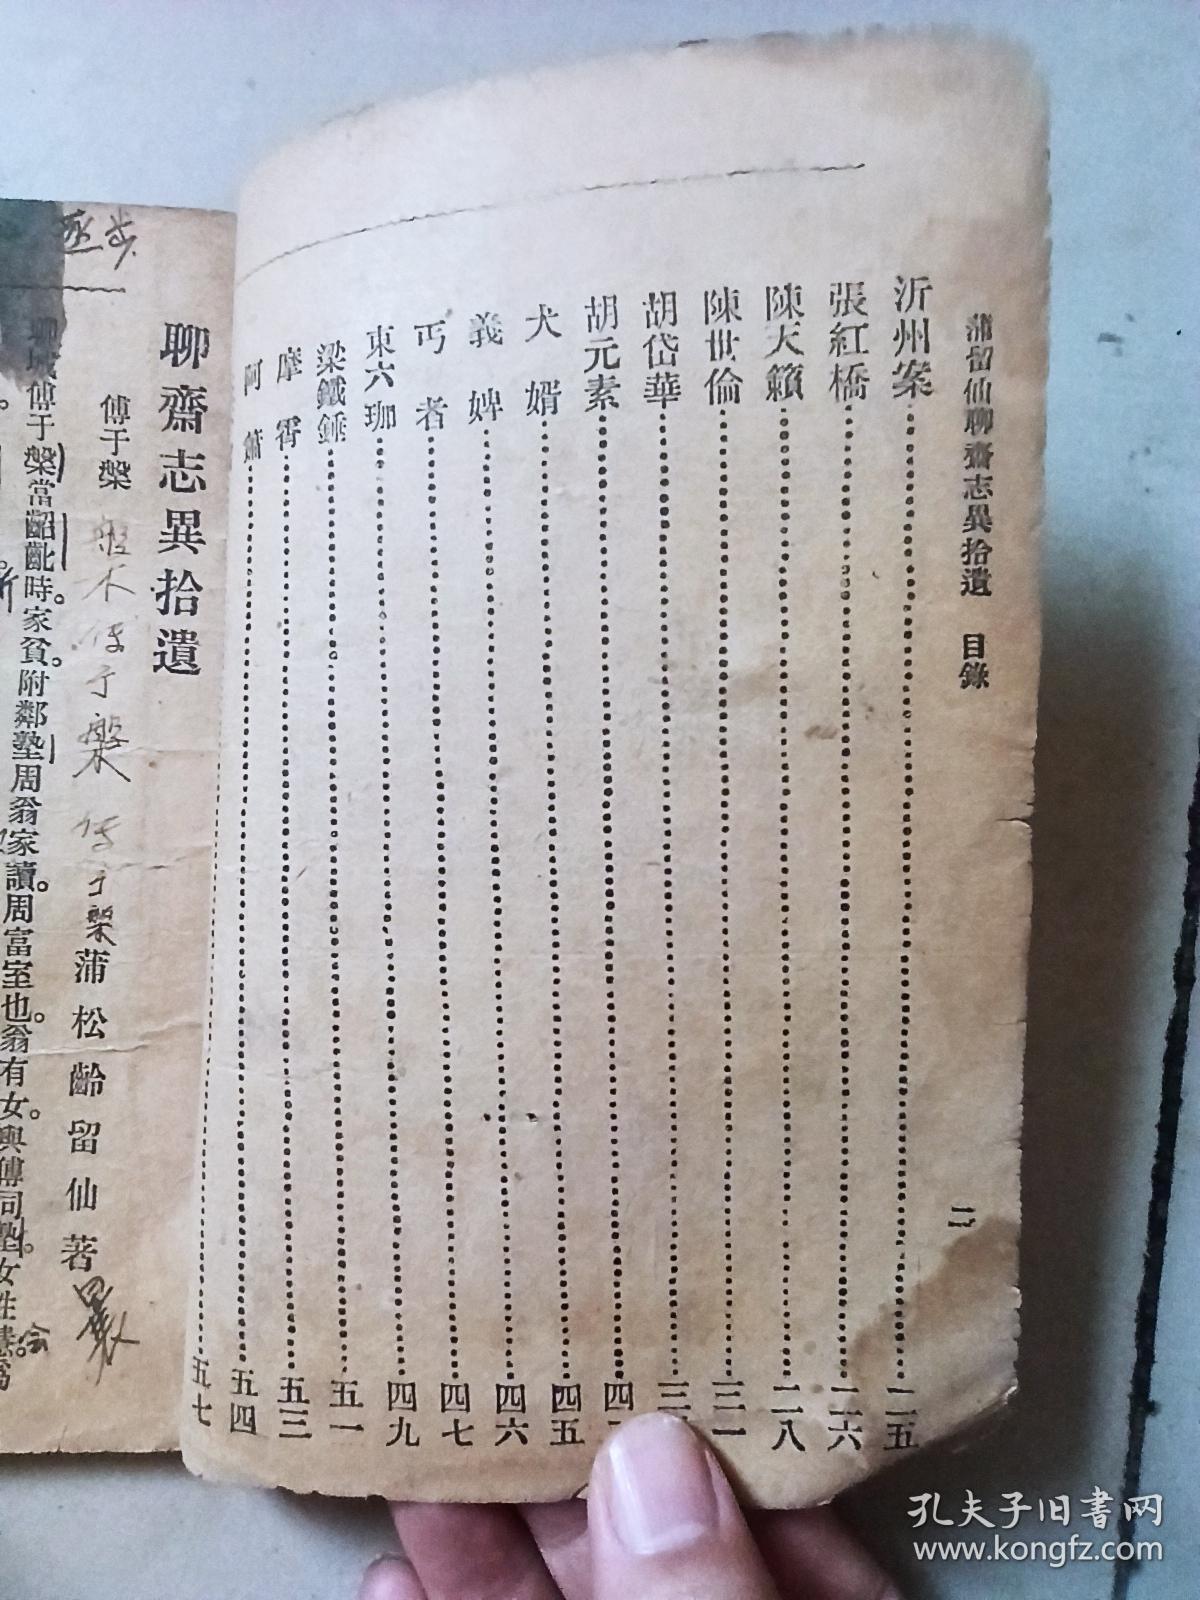 蒲留仙聊齋志異拾遺 目錄 二
沂州案 二五
張紅橋 二六
陳天籟 二八
陳世倫 三一
胡岱華 三
胡元素 四
犬婿 四五
義婢 四六
丐者 四七
東六珈 四九
梁鐵錘 五一
摩霄 五三
阿簫 五四
五七
聊齋志異拾遺
傅于槃 蒲松齡留仙著
傅于槃
聊城傅于槃當齠齔時。家貧。附鄰塾周翁家讀。周富室也。翁有女。與傅同塾。女性慧
孔夫子旧书网
www.kongfz.com